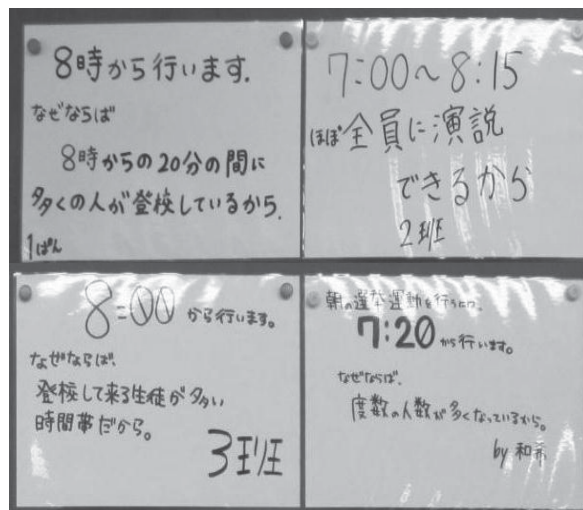 8時から行います.
なぜならば
8時からの20分の間に
多くの人が登校しているから.
1ぱん
7:00〜8:15
ほぼ全員に演説
できるから
2班
8:00から行います。
なぜならば、
登校して来る生徒が多い
時間帯だから。
3班
朝の選挙運動を行うなら、
7:20から行います。
なぜならば、
度数の人数が多くなっているから。
by 和希